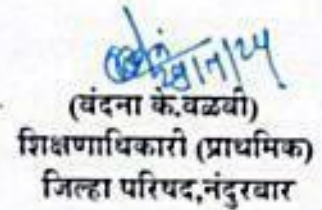 (वंदना के.वळवी)
शिक्षणाधिकारी (प्राथमिक)
जिल्हा परिषद,नंदुरबार